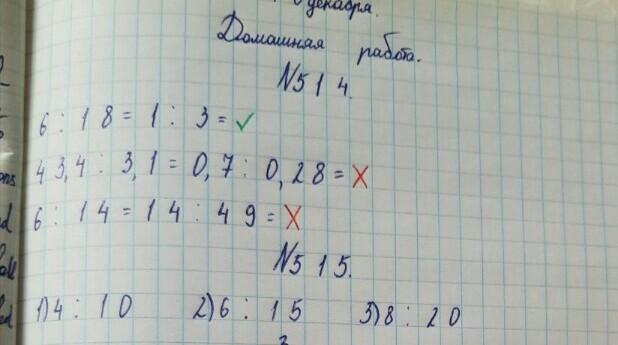 декабря.
Домашная работа.
N514.
6 : 18 = 1 : 3 = ✓
43,4 : 3,1 = 0,7 : 0,28 = X
6 : 14 = 14 : 49 = X
N515.
1) 4 : 10 2) 6 : 15 3) 8 : 20